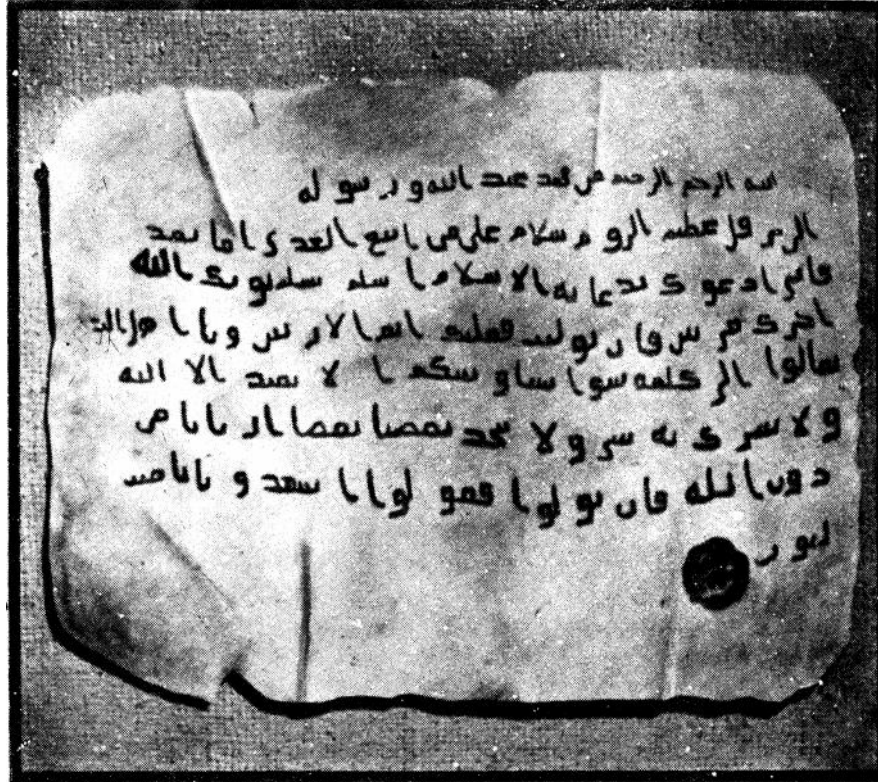 بسم الله الرحمن الرحيم من محمد عبد الله ورسوله
الى هرقل عظيم الروم سلام على من اتبع الهدى اما بعد
فانى ادعوك بدعاية الاسلام اسلم تسلم يوتك الله
اجرك مرتين فان توليت فعليك اثم الاريسين ويا اهل الكتب
تعالوا الى كلمة سوا بيننا وبينكم ا لا نعبد الا الله
ولا نشرك به شيئا ولا يتخذ بعضنا بعضا اربابا من
دون الله فان تولوا فقولوا اشهدوا بانا مس
لمون